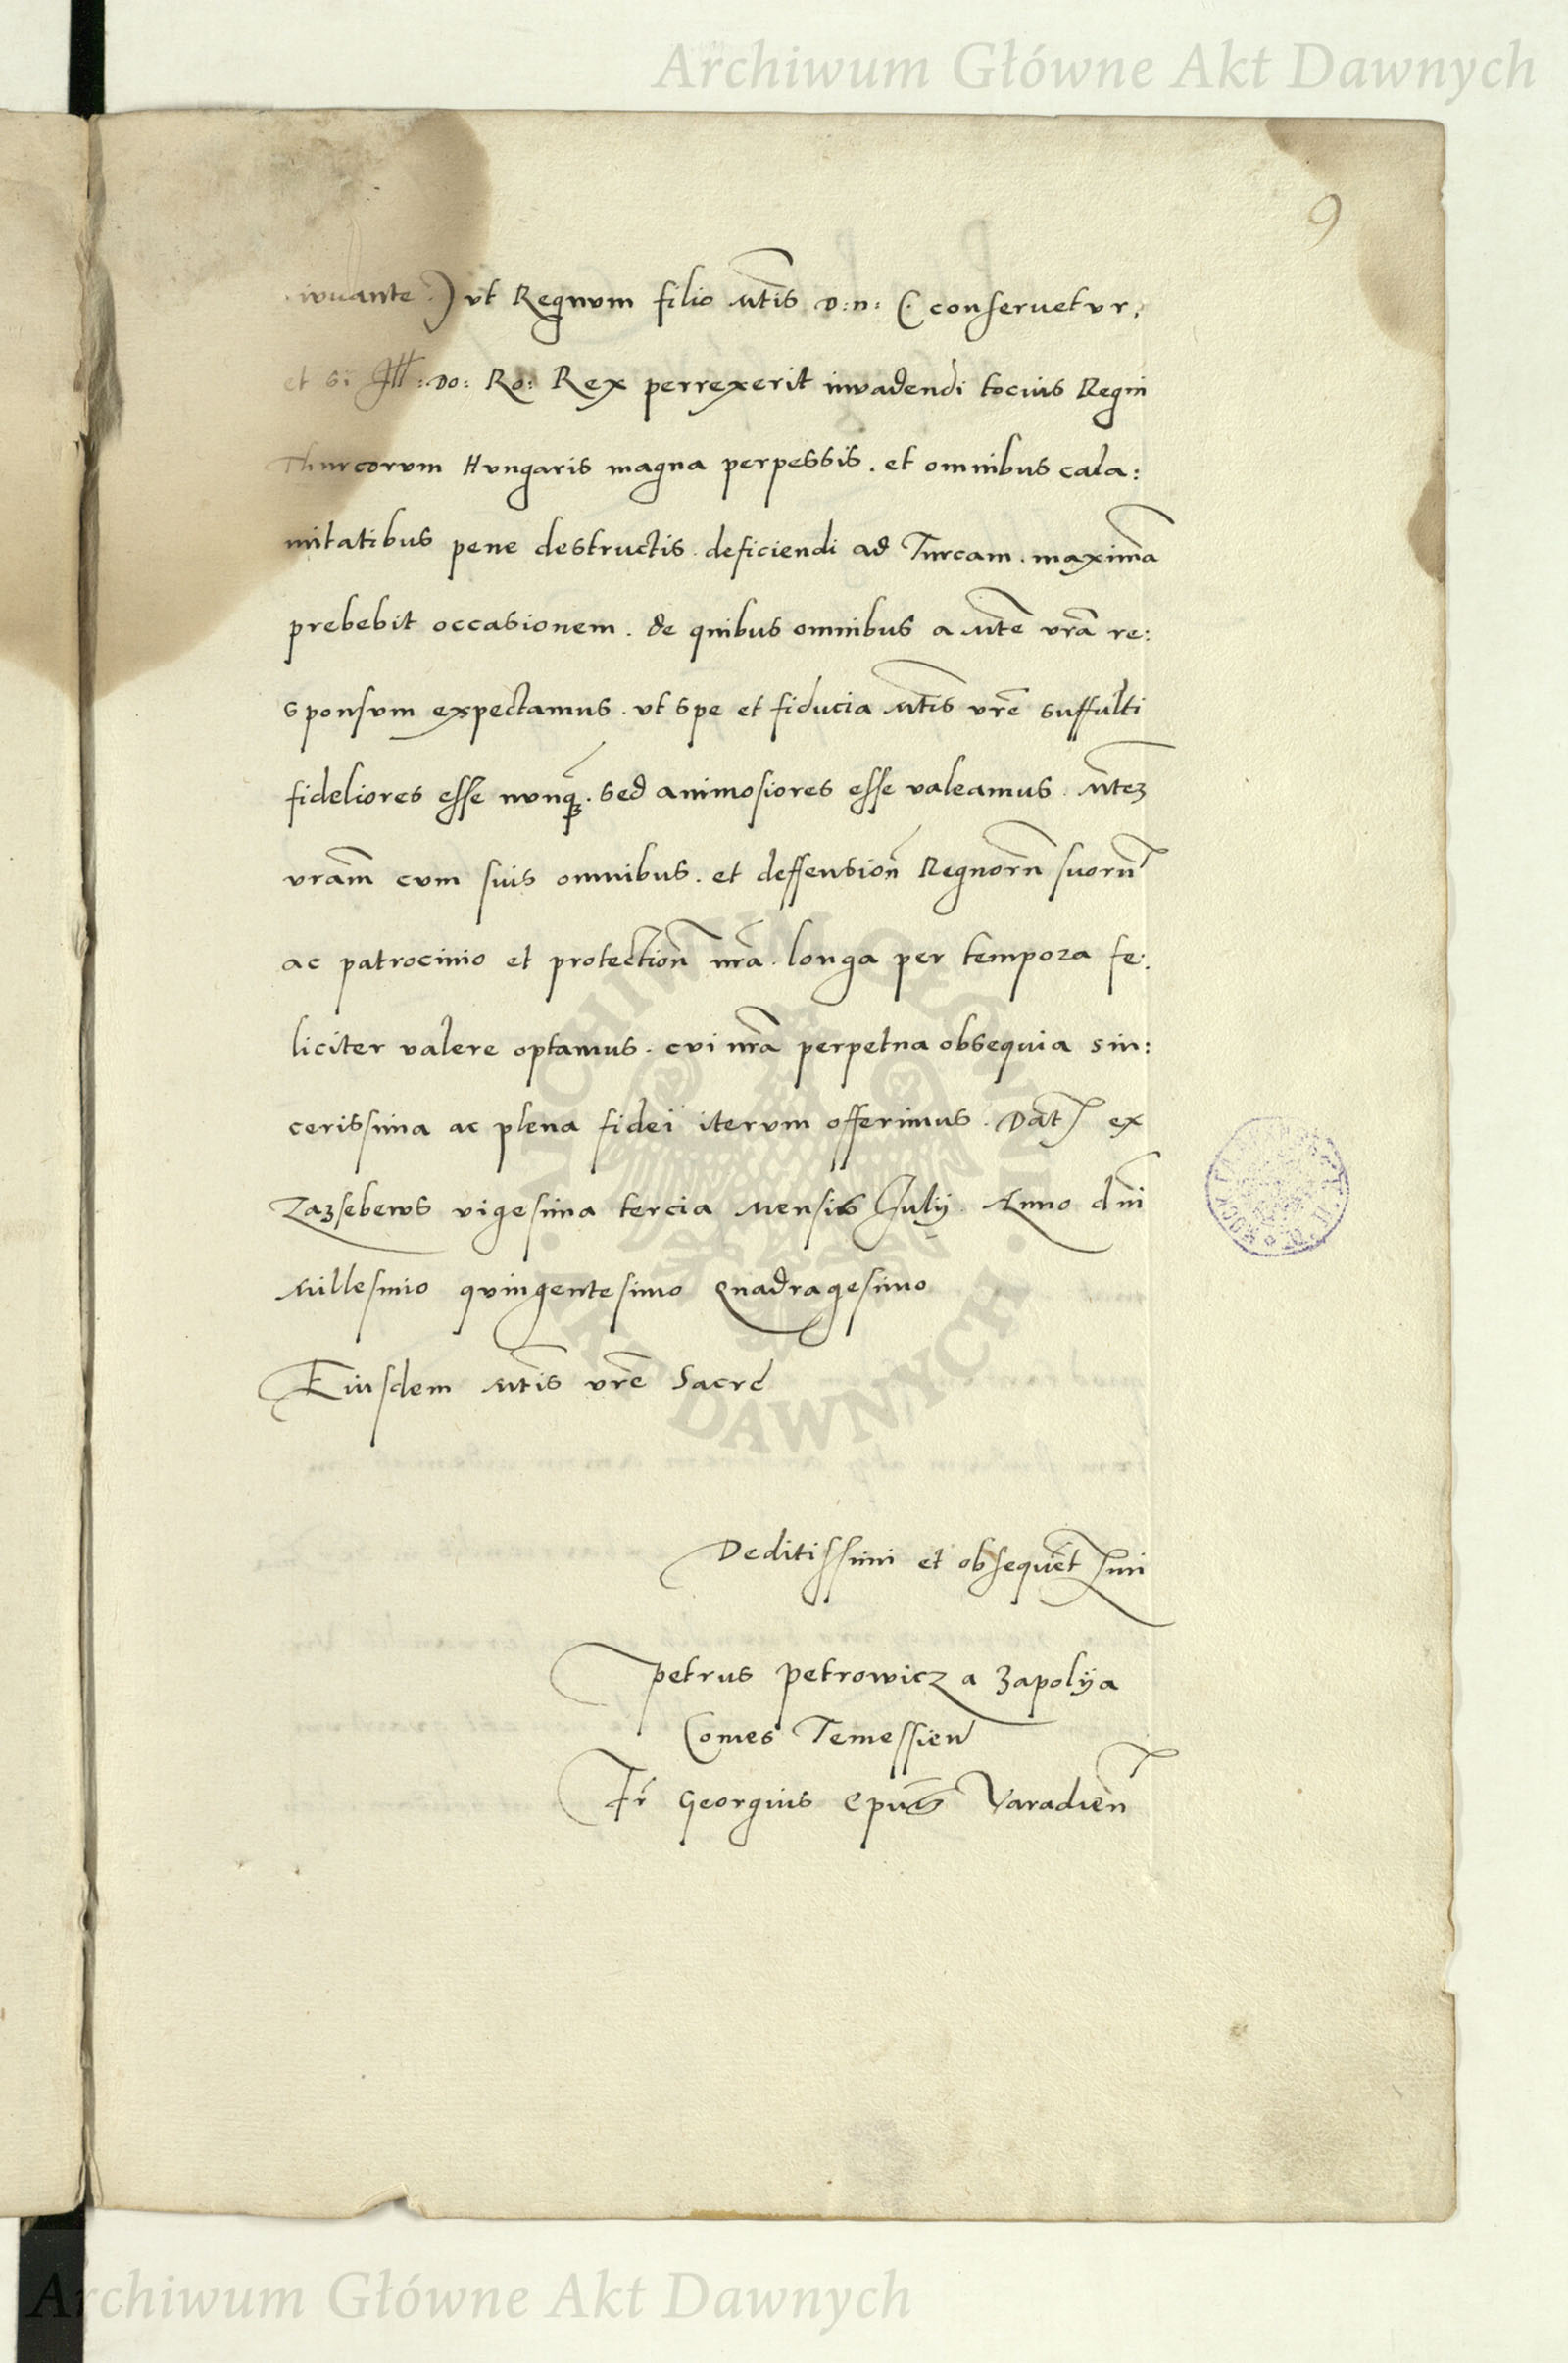 Archiwum Główne Akt Dawnych
9
iuuante.) vt Regnum filio Mtis D:n: (. conseruetur,
et si Ill: Do: Ro: Rex perrexerit invadendi tocius Regni
Thurcorum Hungaris magna perpessis. et omnibus cala:
mitatibus pene destructis. deficiendi ad Turcam. maxima
prebebit occasionem. de quibus omnibus a Mte vra re:
sponsum expectamus. vt spe et fiducia Mtis vre suffulti
fideliores esse nunq. sed animosiores esse valeamus. Mtez
vram cum suis omnibus. et deffension Regnoru suoru
ac patrocinio et protection nra. longa per tempora fe:
liciter valere optamus. cui nra perpetua obsequia sin:
cerissima ac plena fidei iterum offerimus. Dat ex
Zazsebews vigesima tercia Mensis Julij. Anno dni
Millesimo quingentesimo Quadragesimo
Eiusdem Mtis vre Sacre
Deditissimi et obsequetissimi
petrus petrowicz a Zapolÿa
Comes Temessien
Fr Georgius Epus Varadien
ARCHIWUM GŁÓWNE AKT DAWNYCH
Archiwum Główne Akt Dawnych